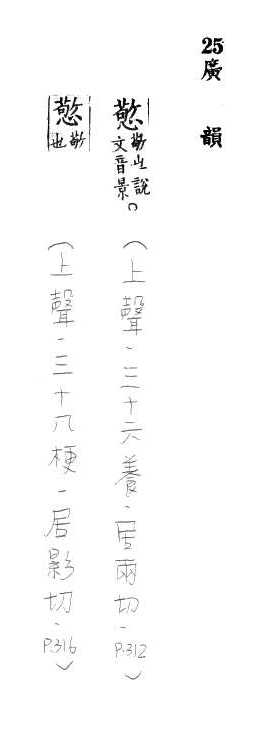 25廣韻
憼敬也說文音景。
（上聲．三十六養．居兩切．P.312）
憼敬也
（上聲．三十八梗．居影切．P.316）